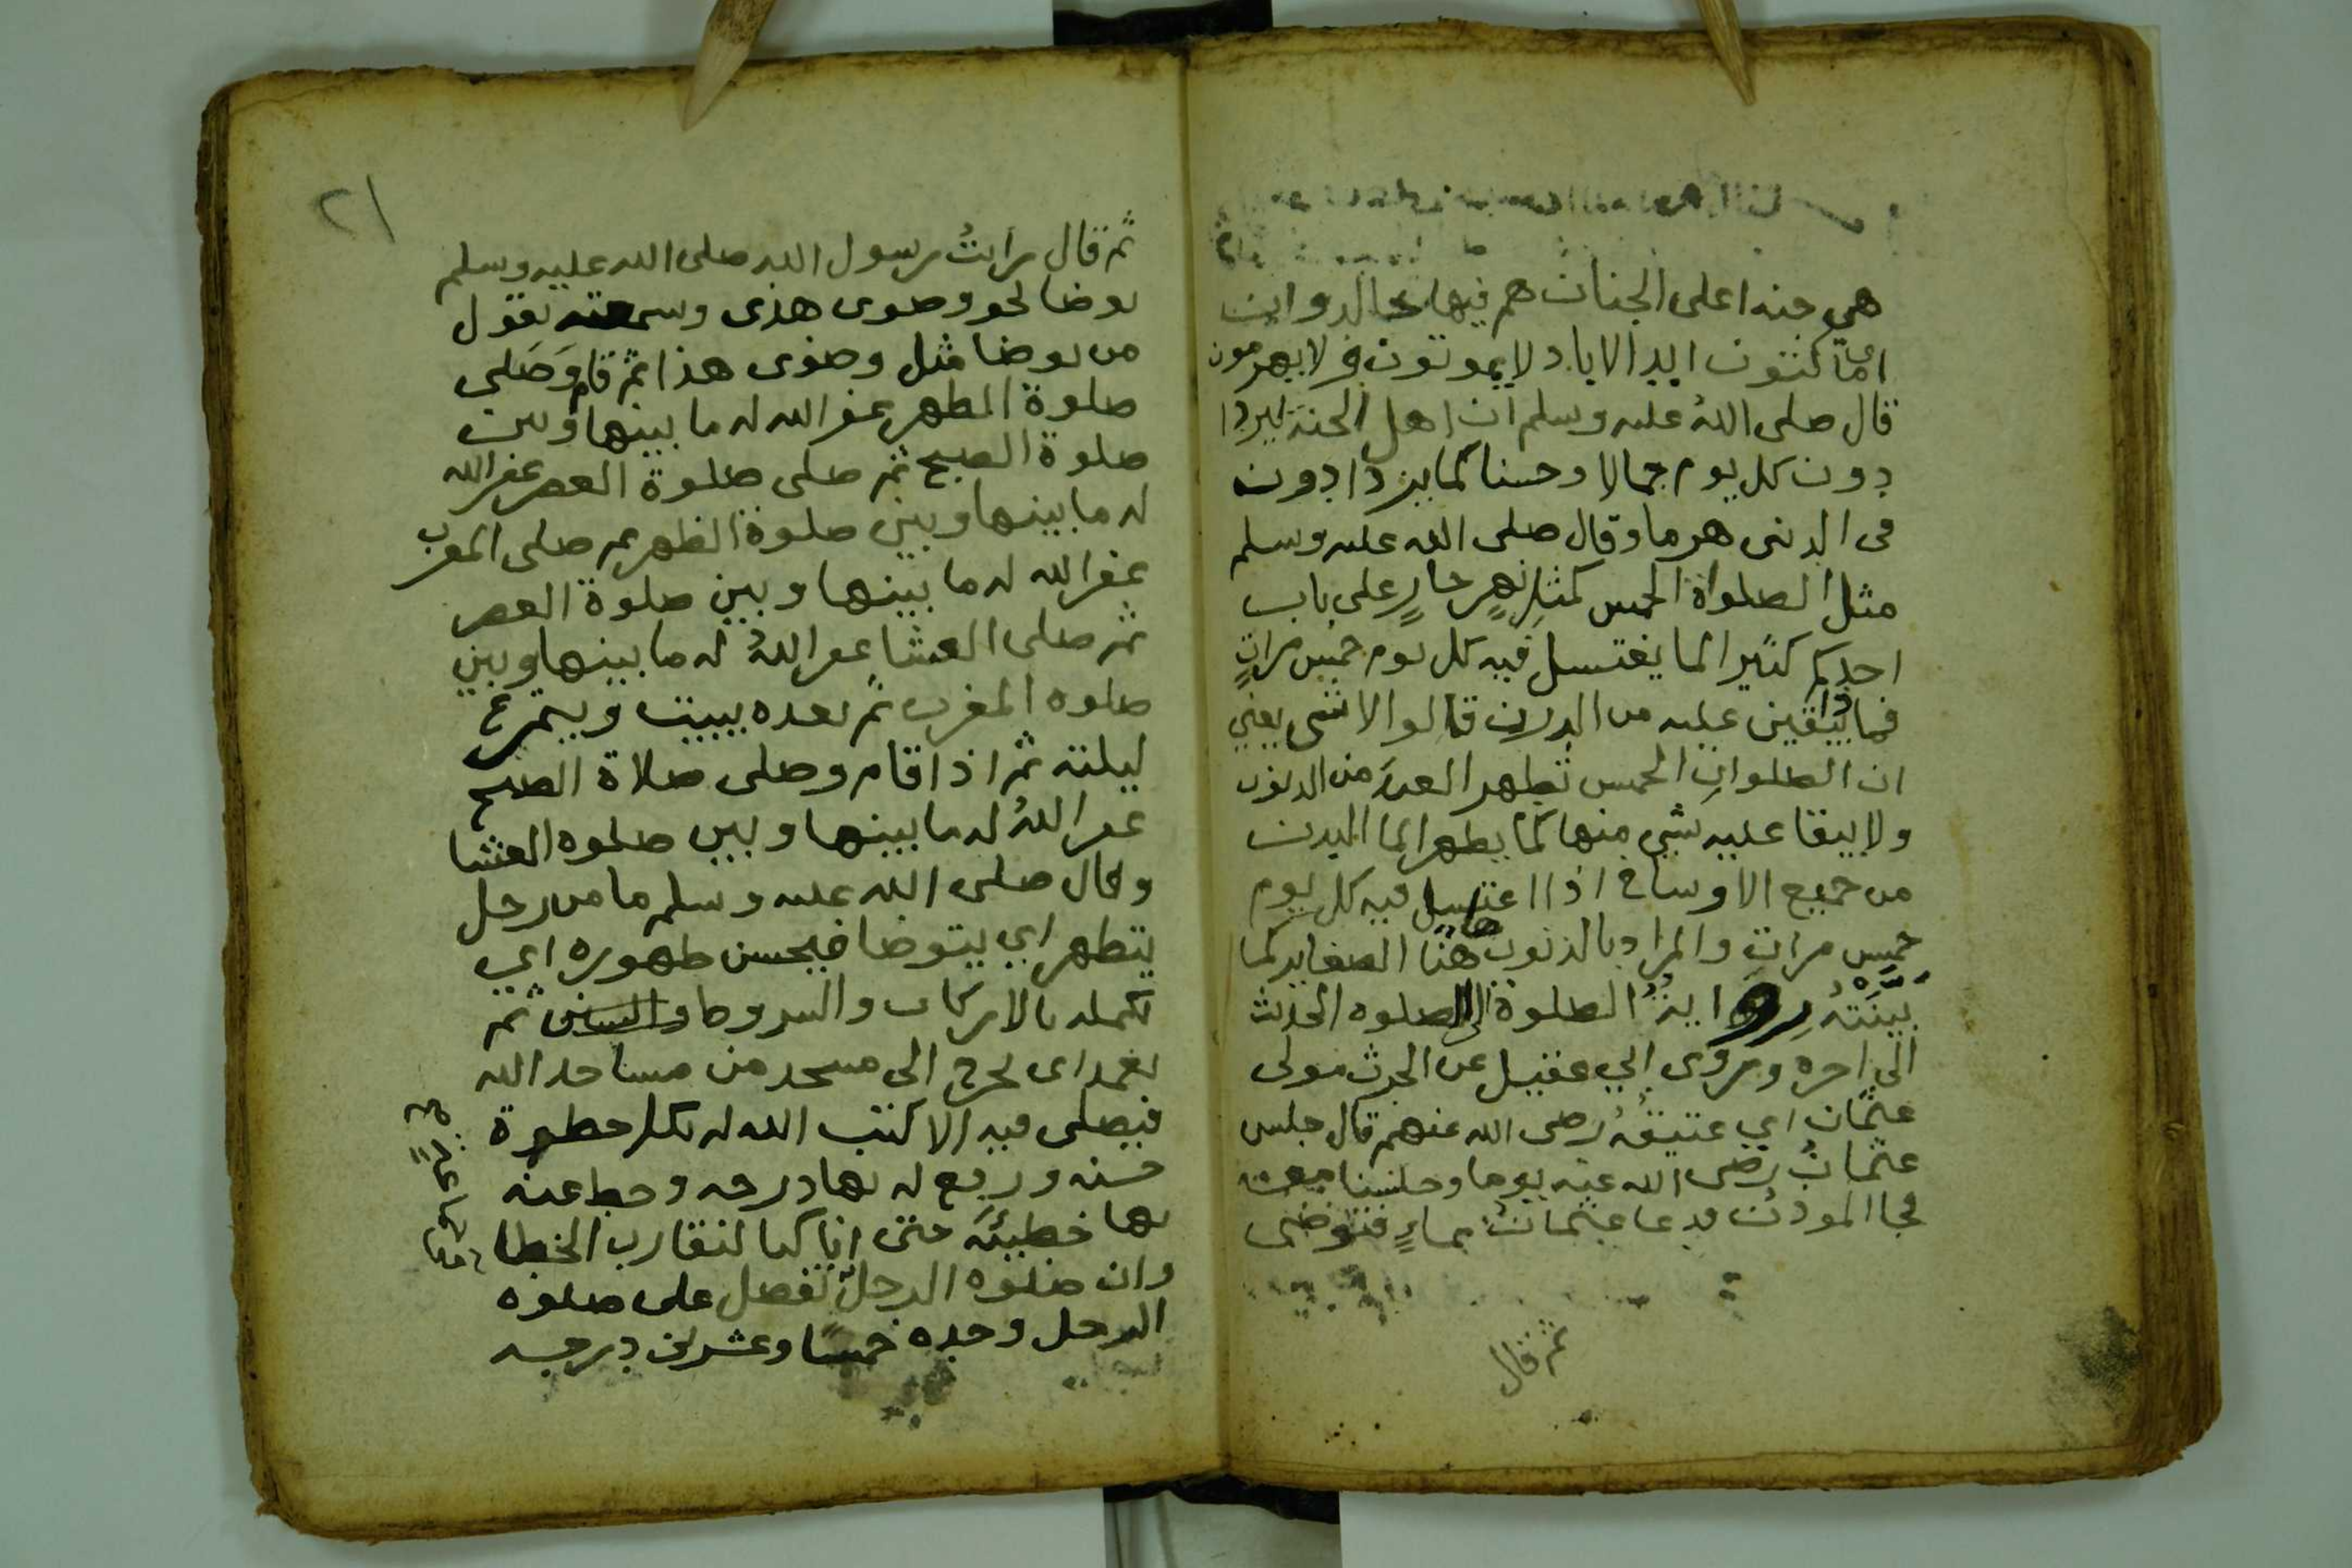 هي جنه اعلى الجنات هم فيها خالدو اين
اي ماكنتون ابد الاباد لا يموتون فى لا يهرمون
قال صلى الله عليه وسلم ان اهل الجنة ليزدا
دون كل يوم جمالا وحسنا كما يزدادون
فى الدنى هرما وقال صلى الله عليه وسلم
مثل الصلواة الخمس كمثل نهر جارٍ على باب
احدكم كثير الما يغتسل فيه كل يوم خمس مراتٍ
فما ذا يبقين عليه من الدرن قالوا لا شى يعني
ان الصلوات الخمس تطهر العبد من الذنوب
ولا يبقا عليه شي منها كما يطهر الما البدن
من جميع الاوساخ اذا اغتسل فيه كل يوم
خمس مرات والمراد بالذنوب هنا الصغاير كما
بينته رواية الصلوة الى الصلوه الحديث
الى اخره وروى ابي عقيل عن الحرث مولى
عثمان اي عتيقه رضى الله عنهم قال جلس
عثمان رضى الله عنه يوما وجلسنا معه
فجا الموذن فدعا عثمان بماءٍ فتوضى
ثم قال
٢١
ثم قال رايتُ رسول الله صلى الله عليه وسلم
توضا نحو وضوى هذى وسمعته يقول
من توضا مثل وضوى هذا ثم قام وَصَلى
صلوة الظهر غفر الله له ما بينها وبين
صلوة الصبح ثم صلى صلوة العصر غفر الله
له ما بينها وبين صلوة الظهر ثم صلى المغرب
غفر الله له ما بينها وبين صلوة العصر
ثم صلى العشا غفر اللهُ له ما بينها وبين
صلوه المغرب ثم بعده يبيت ويتمرغ
ليلته ثم اذا قام وصلى صلاة الصبح
غفر اللهُ له ما بينها وبين صلوه العشا
وقال صلى الله عليه وسلم ما من رجل
يتطهر اي يتوضا فيحسن طهوره اي
يكمله بالاركان والشروط والسنن ثم
يعمد اى يخرج الى مسجد من مساجد الله
فيصلى فيه الا كتب الله له بكل خطوة
حسنه ورفع له بها درجه وحط عنه
بها خطيئة حتى انا كنا لنقارب الخطا
وان صلوه الرجل تفضل على صلوه
الرجل وحده خمسًا وعشرين درجه